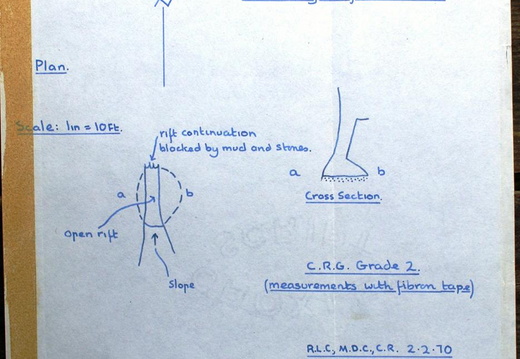 Plan.
Scale: 1in = 10Ft.
rift continuation
blocked by mud and stones.
a
b
a
b
Cross Section.
open rift
Slope
C.R.G. Grade 2.
(measurements with fibron tape)
R.L.C., M.D.C., C.R. 2·2·70